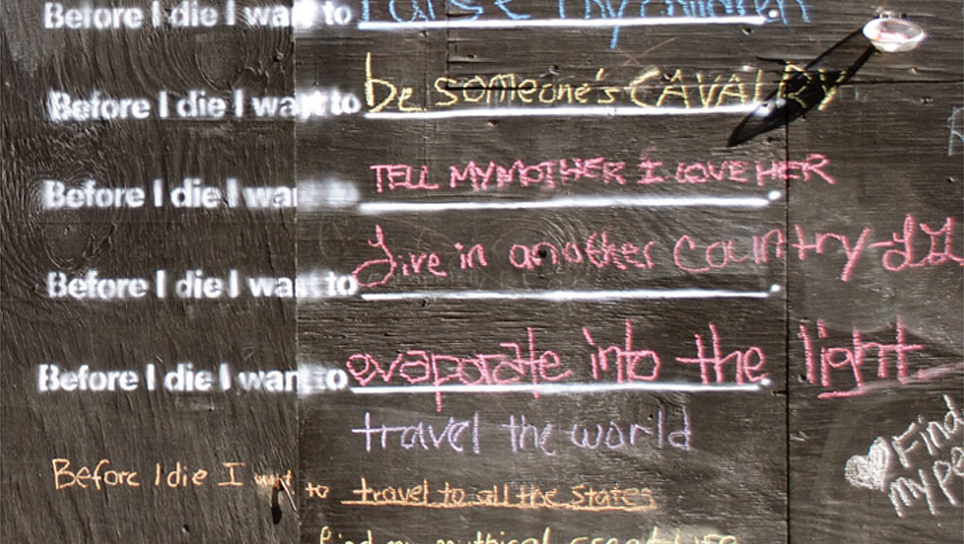 Before I die I want to raise my children
Before I die I want to be someone's CAVALRY
Before I die I want to TELL MY MOTHER I LOVE HER
Before I die I want to Live in another country
Before I die I want to evaporate into the light.
travel the world
Before I die I want to travel to all the States
Find
my
find my mythical